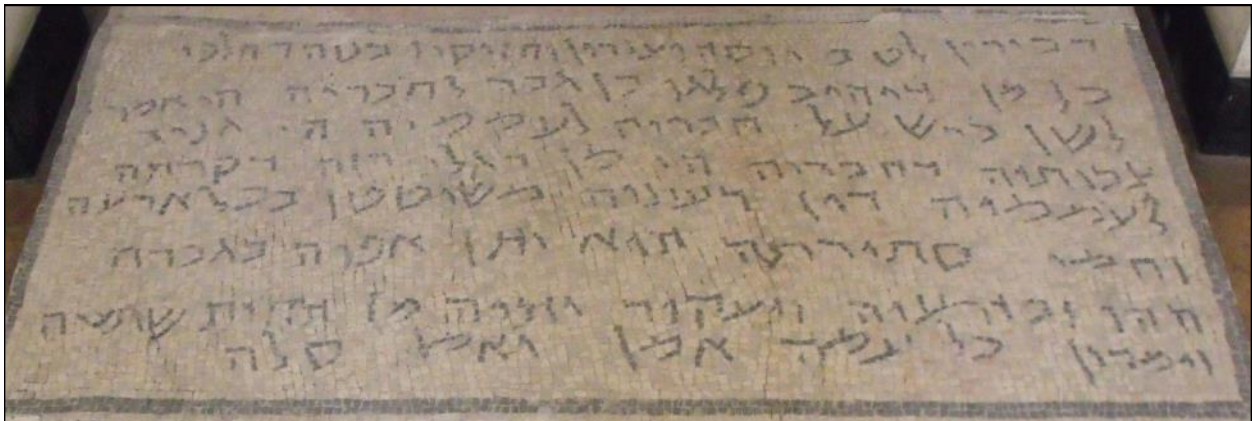 דכירין לטב יוסה ועירון וחזיקיו בנוה דחלפי
כל מן דיהיב פלגו בן גבר לחבריה הי אמר
לשן ביש על חבריה לעממיה הי גניב
צבותיה דחבריה הי מן דגלי רזה דקרתה
לעממיה דין דעינוה משוטטן בכל ארעה
וחמי סתירתה הוא יתן אפוה בגברה
ההו ובזרעיה ויעקור יתיה מן תחות שומיה
וימרון כל עמה אמן ואמן סלה